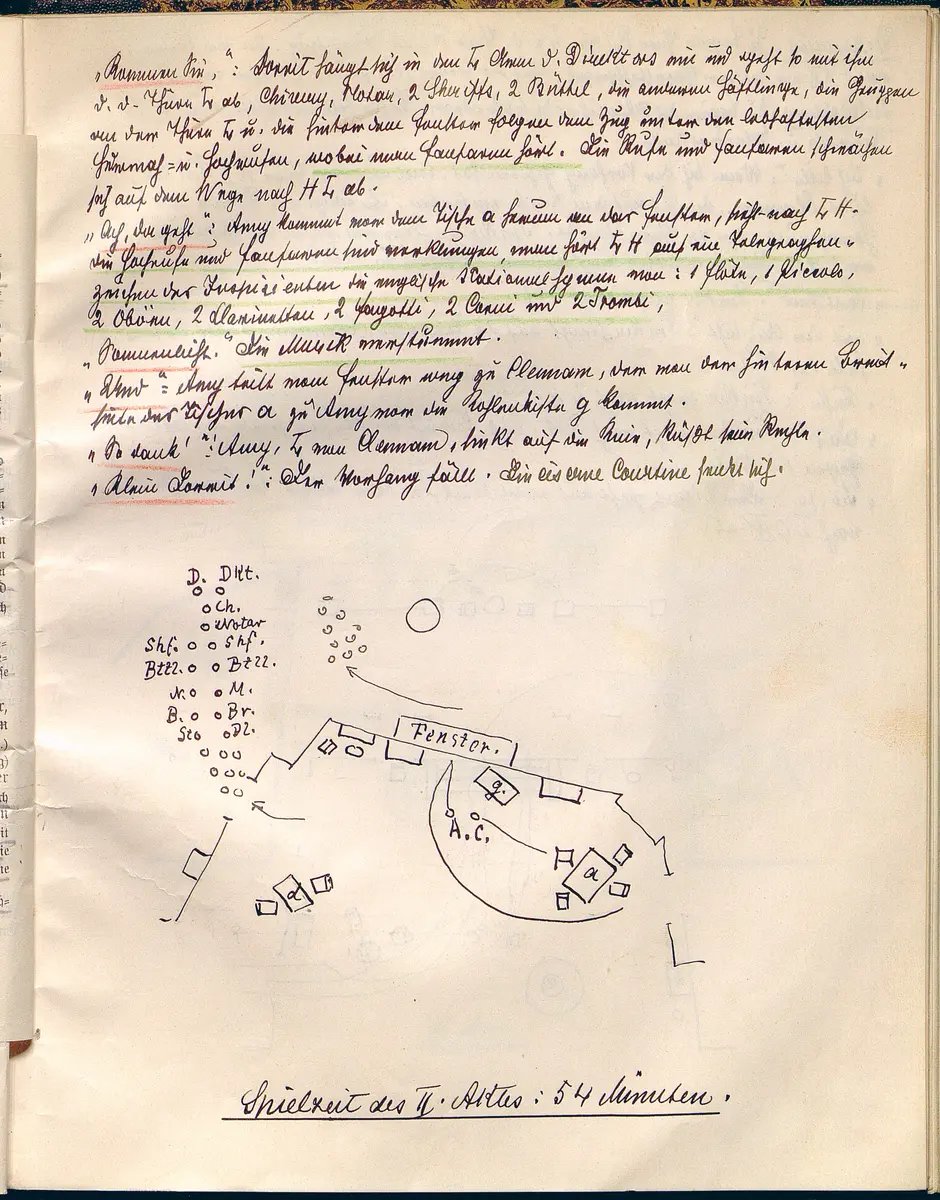 „Kommen Sie,": Dorrit hängt sich in den L Arm d. Direktors ein und geht so mit ihm
d. d. Thüre L ab, Chivery, Notar, 2 Sheriffs, 2 Büttel, die anderen Häftlinge, die Gruppen
an der Thüre L u. die hinter dem Fenster folgen dem Zug unter den lebhaftesten
Hurrah= u. Hochrufen, wobei man Fanfaren hört. Die Rufe und Fanfaren schwächen
sich auf dem Wege nach H L ab.
„Ach, da geht": Amy kommt vor dem Tische a herum an das Fenster, sieht nach L H.
Die Hochrufe und Fanfaren sind verklungen, man hört L H auf ein Telegraphen=
zeichen des Inspicienten die englische Nationalhymne von: 1 Flöte, 1 Piccolo,
2 Oboen, 2 Clarinetten, 2 Fagotti, 2 Corni und 2 Trombi,
„Sonnenlicht." Die Musik verstummt.
„Und": Amy eilt vom Fenster weg zu Clennam, der von der hinteren Breit=
seite des Tisches a zu Amy vor die Kohlenkiste g kommt.
„So dank'": Amy, L von Clennam, sinkt auf die Knie, küßt seine Rechte.
„Klein Dorrit!": Der Vorhang fällt. Die eiserne Courtine senkt sich.
D. Dkt.
Ch.
Notar
Shf. Shf.
Bttl. Bttl.
N. M.
B. Br.
Sto Dl.
Fenster.
g.
A. C.
a
d
Spielzeit des II. Aktes: 54 Minuten.